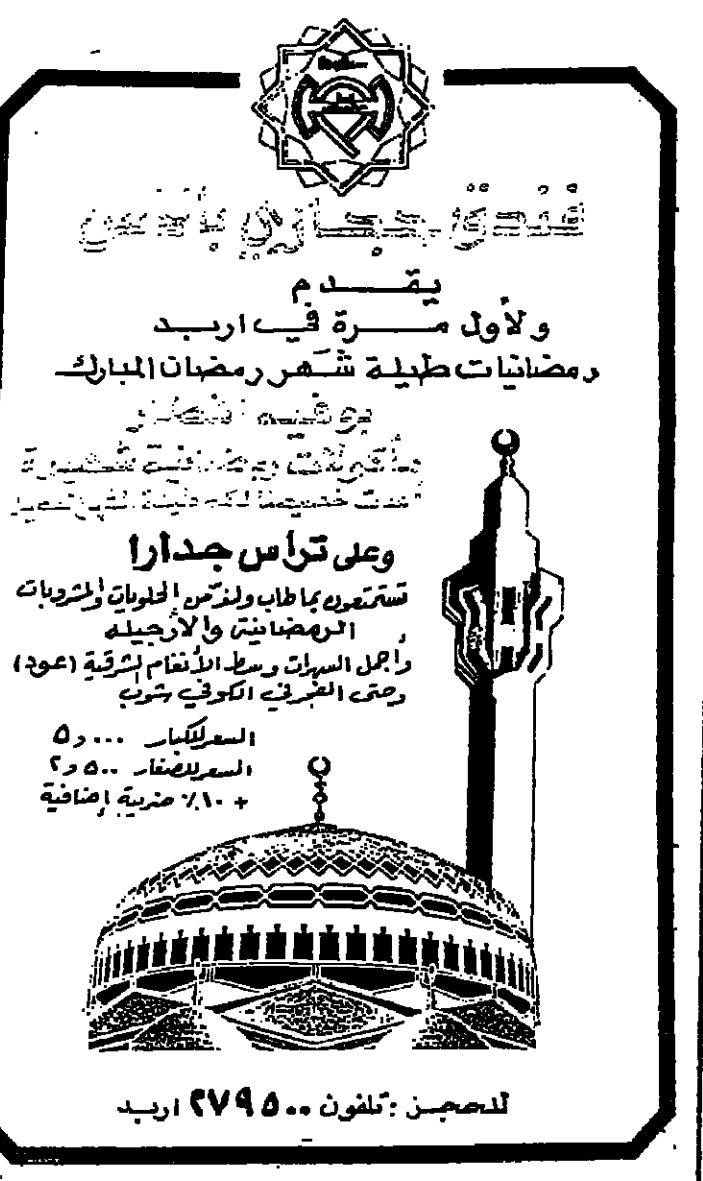 فندق حجازي بالاس
يقدم
ولأول مرة في اربد
رمضانيات طيلة شهر رمضان المبارك
بوفيه افطار
مأكولات شهيرة
وعلى تراس جدارا
تستمتعون بما طاب ولذ من الحلويات والمشروبات
الرمضانية والأرجيله
وأجمل السهرات وسط الأنغام الشرقية (عود)
وحتى الفجر في الكوفي شوب
السعر للكبار ٥٫٠٠٠
السعر للصغار ٢٫٥٠٠
+ ١٠٪ ضريبة إضافية
للحجز : تلفون ٢٧٩٥٠٠ اربد